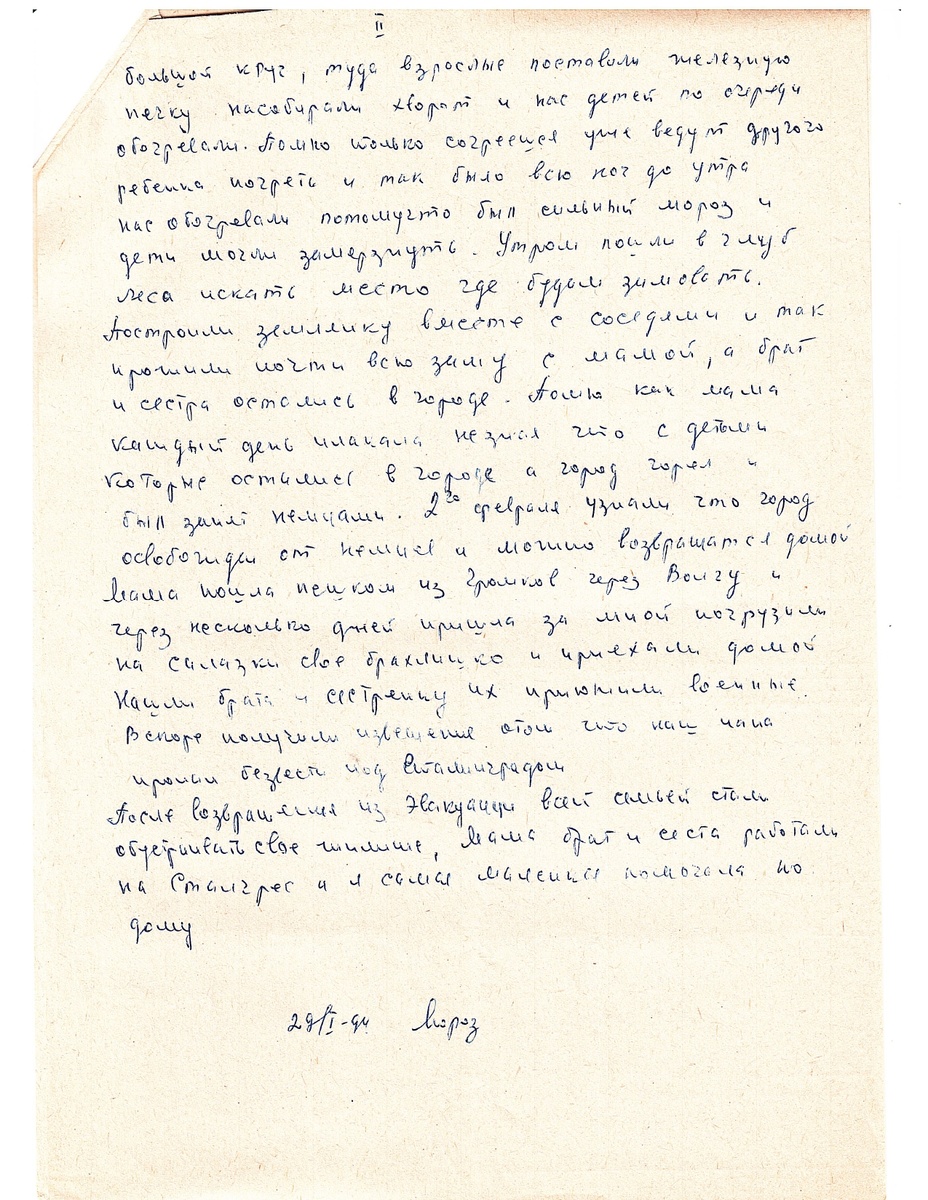 II
большой круг, туда взрослые поставили железную
печку насобирали хворост и нас детей по очереди
обогревали. Помню только согреешся уже ведут другого
ребенка погреть и так было всю ноч до утра
нас обогревали потомучто был сильный мороз и
дети могли замерзнуть. Утром пошли в глубь
леса искать место где будем зимовать.
Построили землянку вместе с соседями и так
прожили почти всю зиму с мамой, а брат
и сестра остались в городе. Помню как мама
каждый день плакала незная что с детьми
которые остались в городе а город горел и
был занят немцами. 2го февраля узнали что город
освободили от немцев и можно возвращатся домой
Мама пошла пешком из Громков через Волгу и
через несколько дней пришла за мной погрузили
на салазки свое барахлишко и приехали домой
Нашли брата и сестренку их приютили военные.
Вскоре получили извещение отом что наш папа
пропал безвести под Сталинградом
После возвращения из Эвакуации всей семьей стали
обустраивать свое жилище, Мама брат и сеста работали
на Сталгрес и я самая маленкая помогала по
дому
29/I-94 Мороз